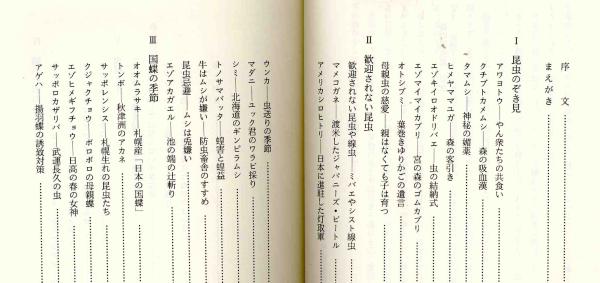 序文
まえがき
Ⅰ 昆虫のぞき見
アワヨトウ―やん衆たちの共食い
クチブトカメムシ―森の吸血漢
タマムシ―神秘の媚薬
ヒメヤママユガ―森の客引き
エゾキイロオドリバエ―虫の結納式
エゾマイマイカブリ―宮の森のゴムカブリ
オトシブミ―葉巻きゆりかごの遺言
母親虫の慈愛―親はなくても子は育つ
Ⅱ 歓迎されない昆虫
歓迎されない昆虫や線虫―ミバエやシスト線虫
マメコガネ―渡米したジャパニーズ・ビートル
アメリカシロヒトリ―日本に進駐した灯取軍
ウンカ―虫送りの季節
マダニ―ユック君のワラビ採り
シミ―北海道のギンピラムシ
トノサマバッタ―蝗害と蝗益
牛はムシが嫌い―防虫畜舎のすすめ
昆虫忌避―ムシは兎嫌い
エゾアカガエル―池の端の辻斬り
Ⅲ 国蝶の季節
オオムラサキ―札幌産「日本の国蝶」
トンボ―秋津洲のアカネ
サッポレンシス―札幌生れの昆虫たち
クジャクチョウ―ボロボロの母親蝶
エゾヒメギフチョウ―日高の春の女神
サッポロカザリバ―武運長久の虫
アゲハ―揚羽蝶の誘致対策